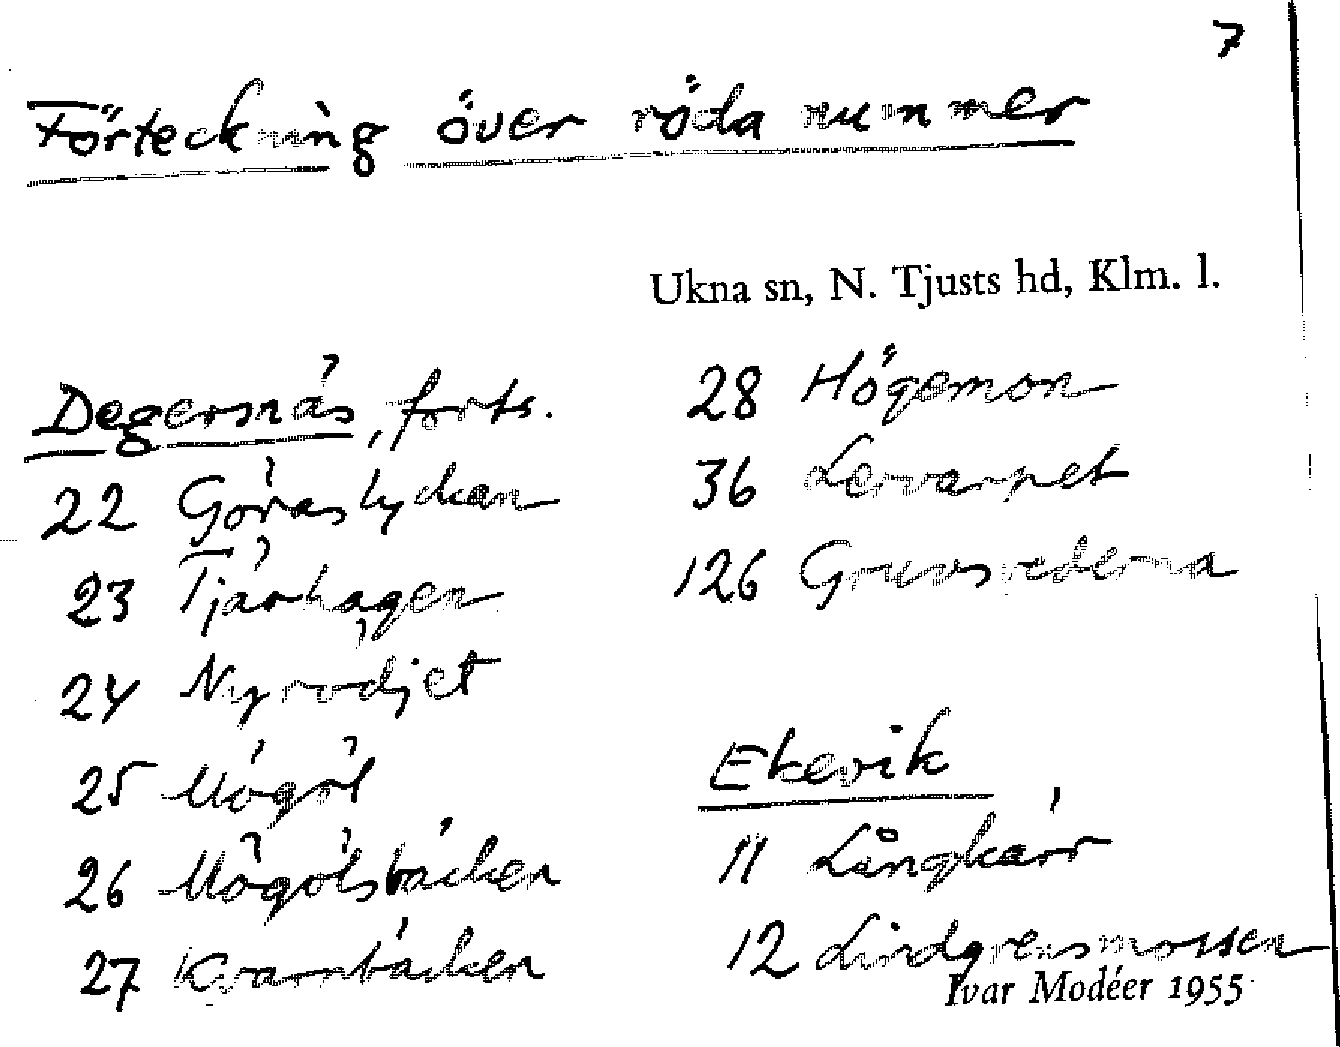 7
Förteckning över röda nummer
Ukna sn, N. Tjusts hd, Klm. l.
Degernäs, forts.
22 Göraslyckan
23 Tjärhagen
24 Nyrödjet
25 Mögöl
26 Mögölsbäcken
27 Kvarnbäcken
28 Högemon
36 Lervarpet
126 Gruvsvederna
Ekevik
11 Långkärr
12 Lindgrensmossen
Ivar Modéer 1955